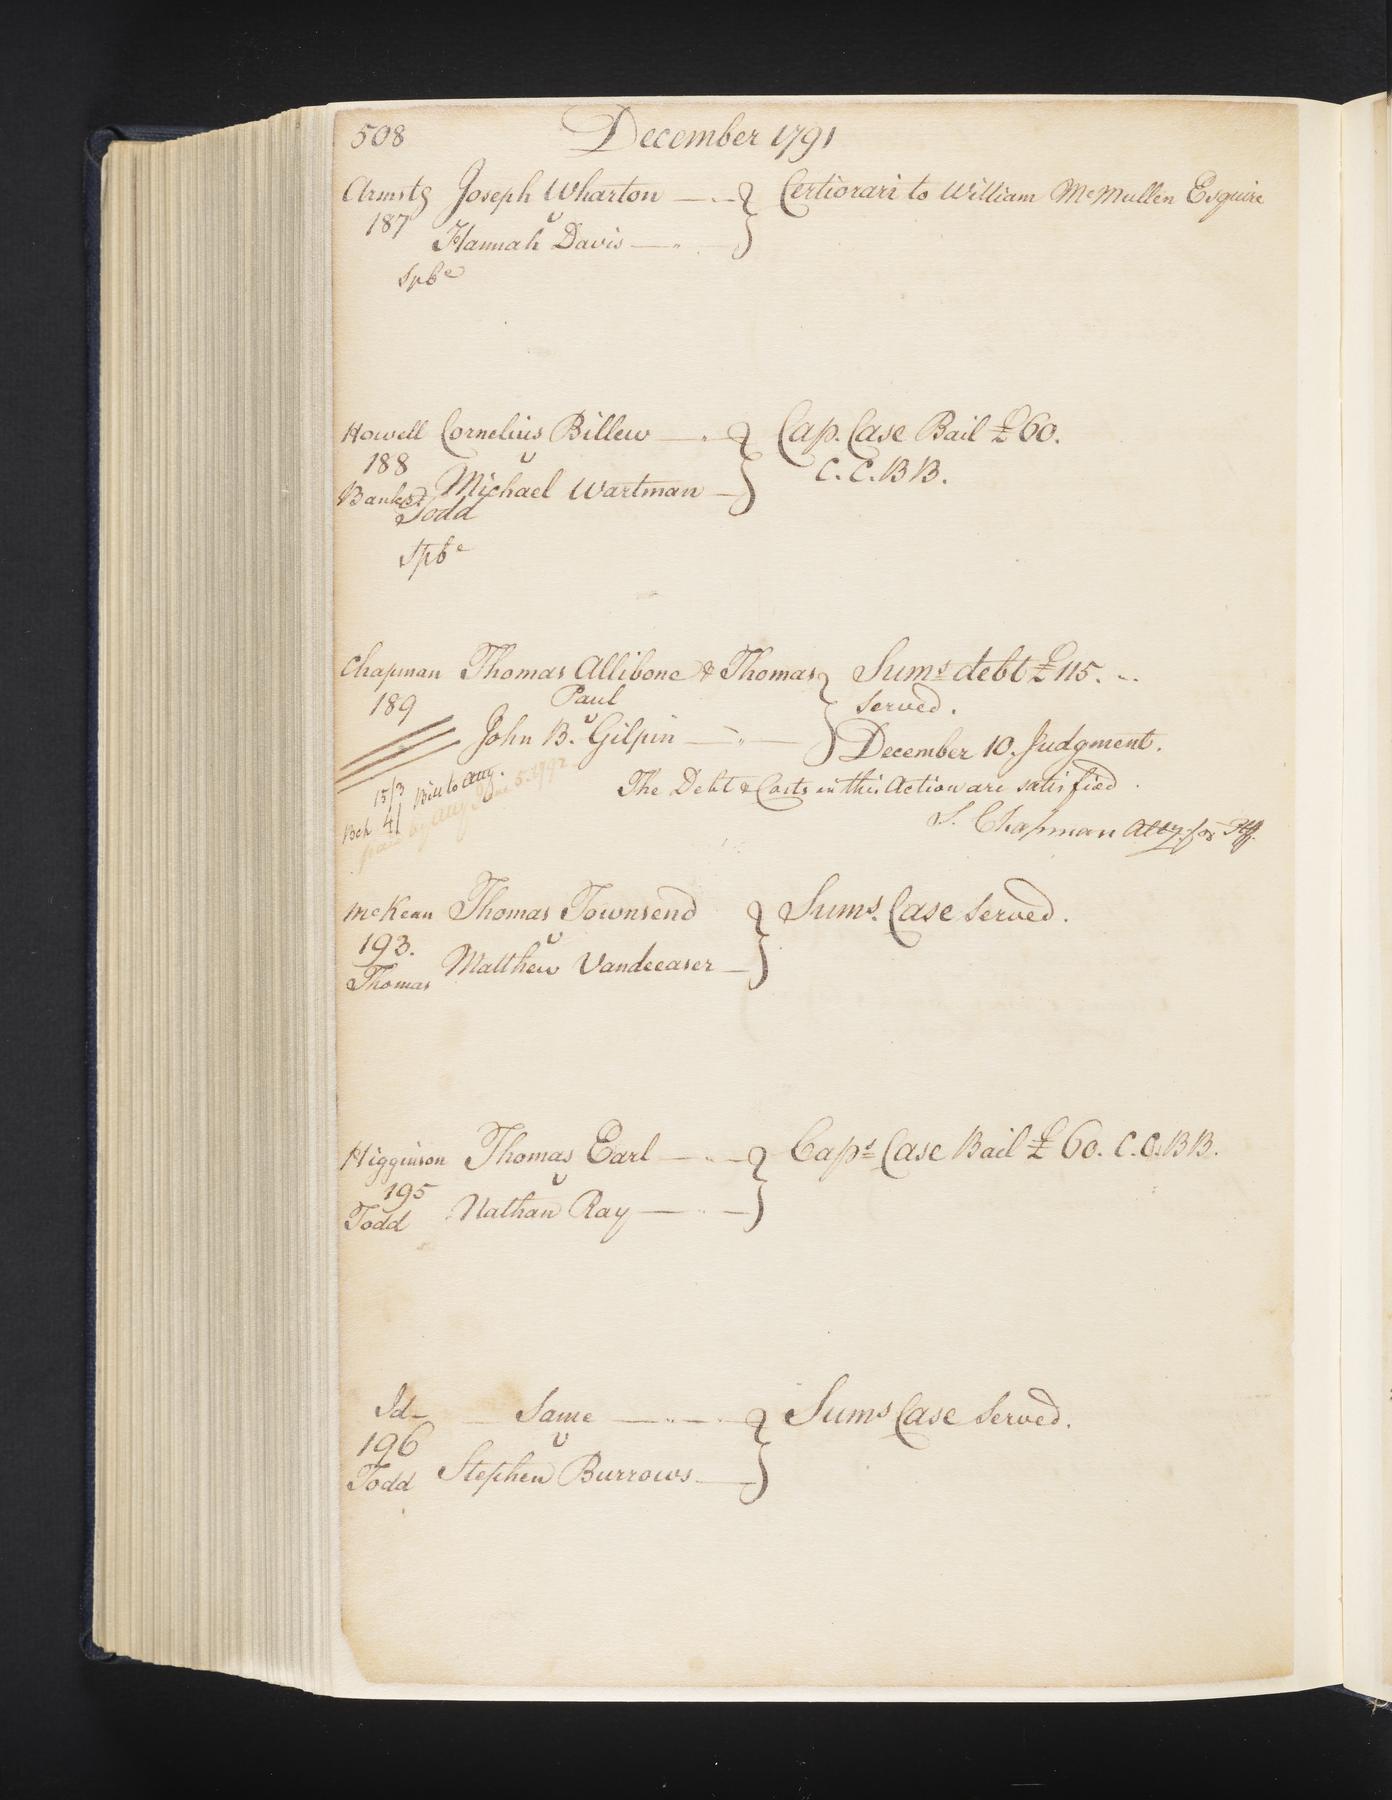 508 December 1791
Armstg Joseph Wharton Certiorari to William McMullen Esquire
187 v
Hannah Davis
Spbe
Howell Cornelius Billew Cap. Case Bail £60.
188 v C.C.BB.
Bankst Michael Wartman
& Todd
Spbe
Chapman Thomas Allibone & Thomas Sums debt £115.
189 Paul served.
v
John B. Gilpin December 10. Judgment.
15/3 Bill to Atty. The Debt & Costs in this Action are satisfied.
Bck 4/ paid by Atty June 5. 1792
S. Chapman Atty for Plff.
McKean Thomas Townsend Sums. Case served.
193. v
Thomas Matthew Vandeeaser
Higginson Thomas Earl Caps Case Bail £60. C.C.BB.
195 v
Todd Nathan Ray
Id- Same Sums Case served.
196 v
Todd Stephen Burrows